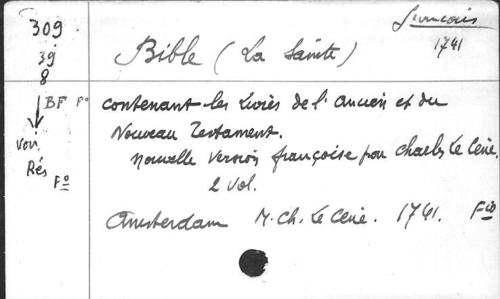 309
39
8
↓
Voir
Rés
Fº
Français
1741
Bible (La Sainte)
BF Fº contenant les Livres de l'Ancien et du
Nouveau Testament.
Nouvelle version françoise par Charles Le Cène.
2 vol.
Amsterdam M. Ch. Le Cène. 1741. Fº